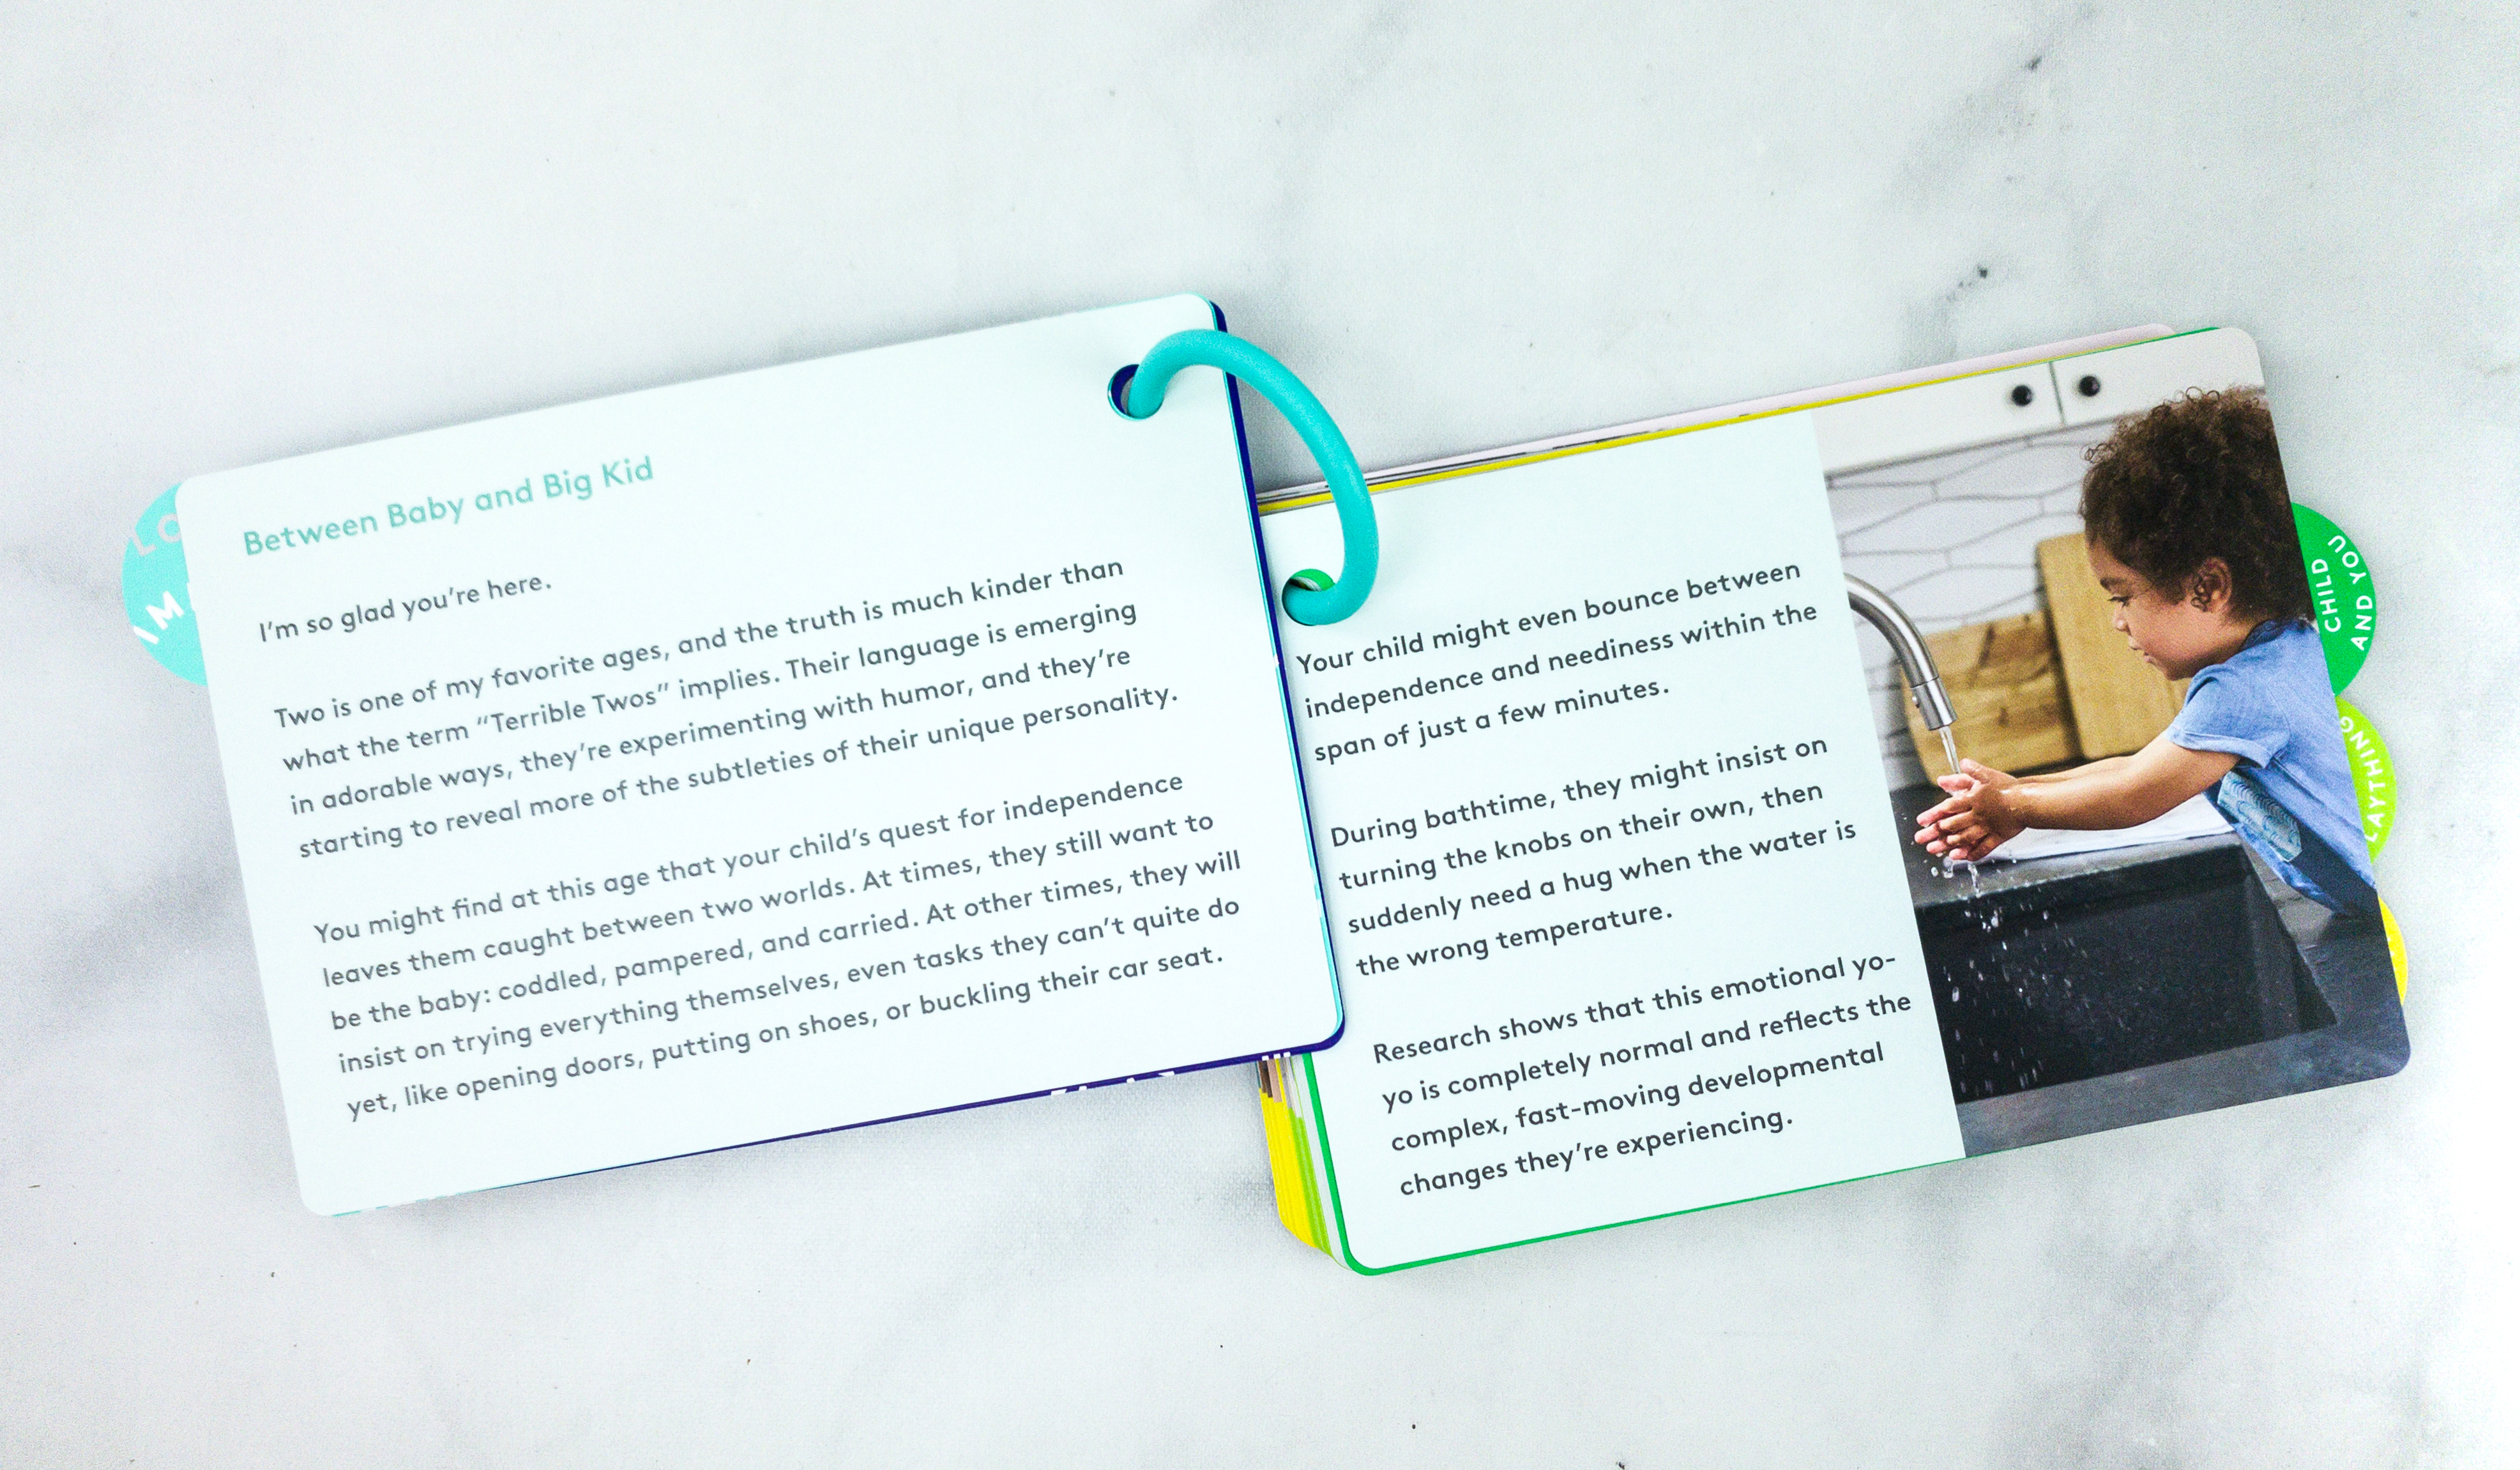 Between Baby and Big Kid
I'm so glad you're here.
Two is one of my favorite ages, and the truth is much kinder than
what the term "Terrible Twos" implies. Their language is emerging
in adorable ways, they're experimenting with humor, and they're
starting to reveal more of the subtleties of their unique personality.
You might find at this age that your child's quest for independence
leaves them caught between two worlds. At times, they still want to
be the baby: coddled, pampered, and carried. At other times, they will
insist on trying everything themselves, even tasks they can't quite do
yet, like opening doors, putting on shoes, or buckling their car seat.
Your child might even bounce between
independence and neediness within the
span of just a few minutes.
During bathtime, they might insist on
turning the knobs on their own, then
suddenly need a hug when the water is
the wrong temperature.
Research shows that this emotional yo-
yo is completely normal and reflects the
complex, fast-moving developmental
changes they're experiencing.
CHILD
AND YOU